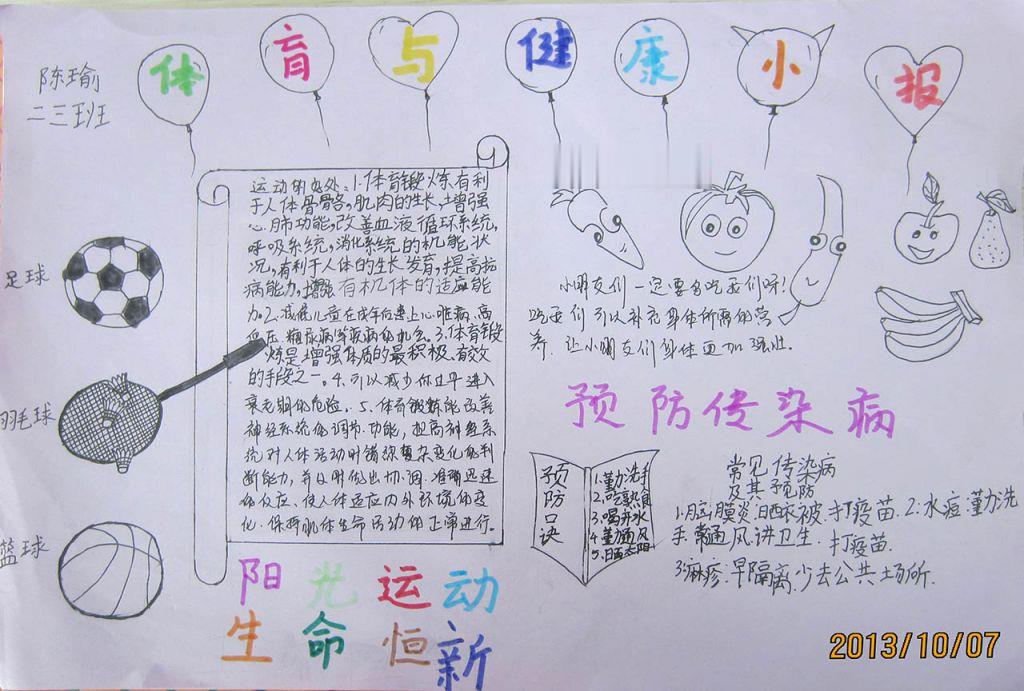 体育与健康小报
陈瑜
二三班
足球
羽毛球
篮球
运动的好处:1.体育锻炼有利
于人体骨骼,肌肉的生长,增强
心肺功能,改善血液循环系统,
呼吸系统,消化系统的机能状
况,有利于人体的生长发育,提高抗
病能力,增强有机体的适应能
力。2.减低儿童在成年后患上心脏病,高
血压,糖尿病等疾病的机会。3.体育锻
炼是增强体质的最积极、有效
的手段之一。4.可以减少你过早进入
衰老期的危险。5.体育锻炼能改善
神经系统的调节功能,提高神经系
统对人体活动时错综复杂变化的判
断能力,并及时做出协调、准确、迅速
的反应,使人体适应内外环境的变
化、保持肌体生命活动的正常进行。
小朋友们一定要多吃我们呀!
吃我们可以补充身体所需的营
养,让小朋友们身体更加强壮。
预防传染病
预防口诀
1.勤洗手
2.吃熟食
3.喝开水
4.勤通风
5.晒太阳
常见传染病
及其预防
1.脑膜炎:晒衣被.打疫苗.2.水痘:勤洗
手.常通风.讲卫生.打疫苗.
3.麻疹:早隔离.少去公共场所.
阳光运动
生命恒新
2013/10/07